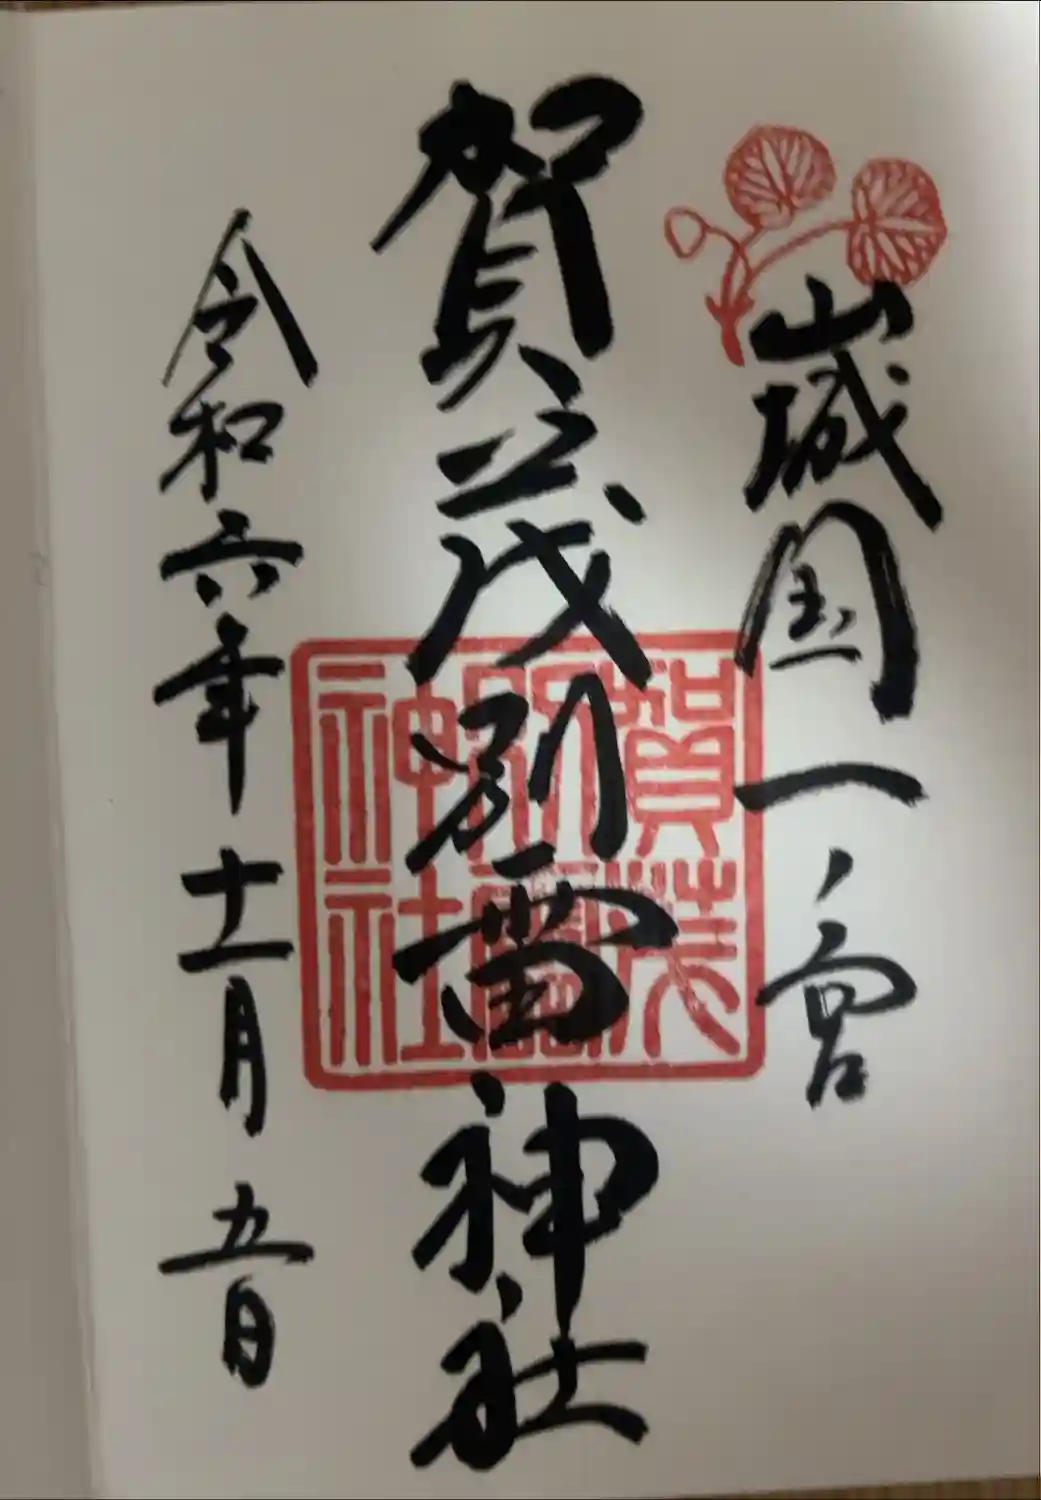 山城国一ノ宮
賀茂別雷神社
賀茂
別雷
神社
令和六年十一月五日